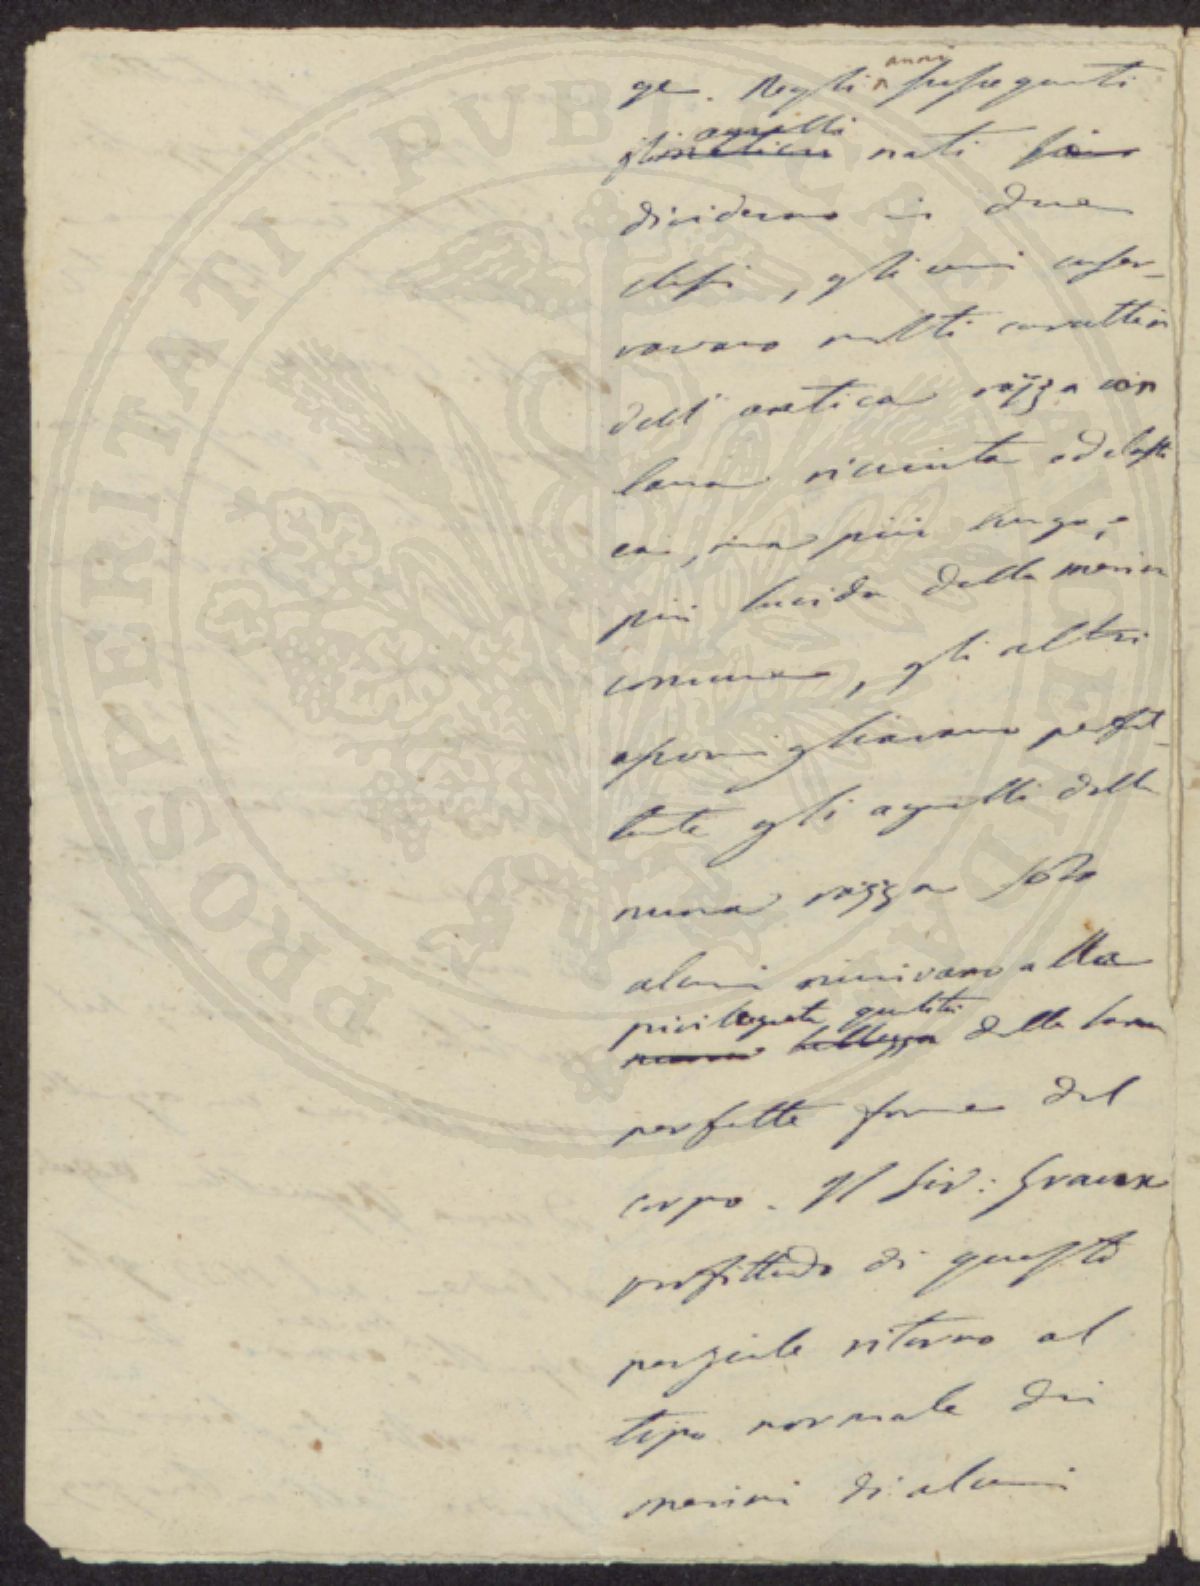 ge. Negli anni susseguenti
gli agnelli nati si
dividevano in due
classi, gli uni conser-
vavano molti caratteri
dell' antica razza con
lana ricciuta ed elasti
ca, ma più lunga, e
più lucida della merina
comune, gli altri
assomigliavano perfet-
tente gli agnelli della
nuova razza solo
alcuni riunivano alla
privilegiata qualità
nuova bellezza della lana
perfette forme del
corpo. Il Sir: Graux
profittando di questo
parziale ritorno al
tipo normale dei
merini di alcuni
PROSPERITATI PUBLICAE AUGENDAE